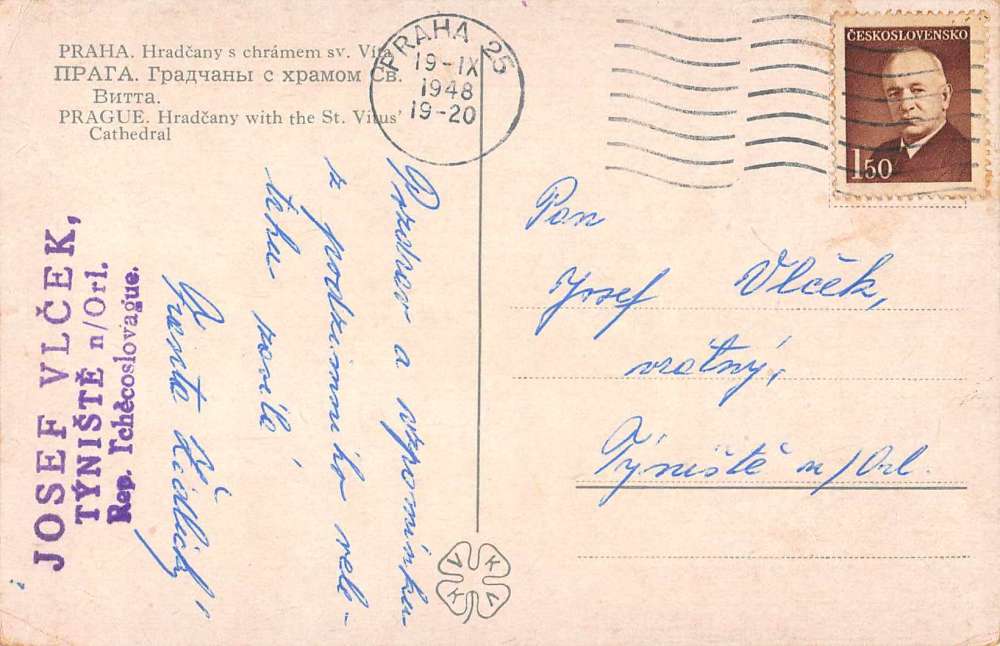 PRAHA. Hradčany s chrámem sv. Víta
ПРАГА. Градчаны с храмом Св.
Витта.
PRAGUE. Hradčany with the St. Vitus'
Cathedral
PRAHA 25
19-IX
1948
19-20
ČESKOSLOVENSKO
150
Pozdrav a vzpomínku
z podzimního vele-
trhu zasílá
JOSEF VLČEK,
TÝNIŠTĚ n/Orl.
Rep. Tchécoslovaque.
Pan
Josef Vlček,
vrátný,
Týniště n/Orl.
V K V K